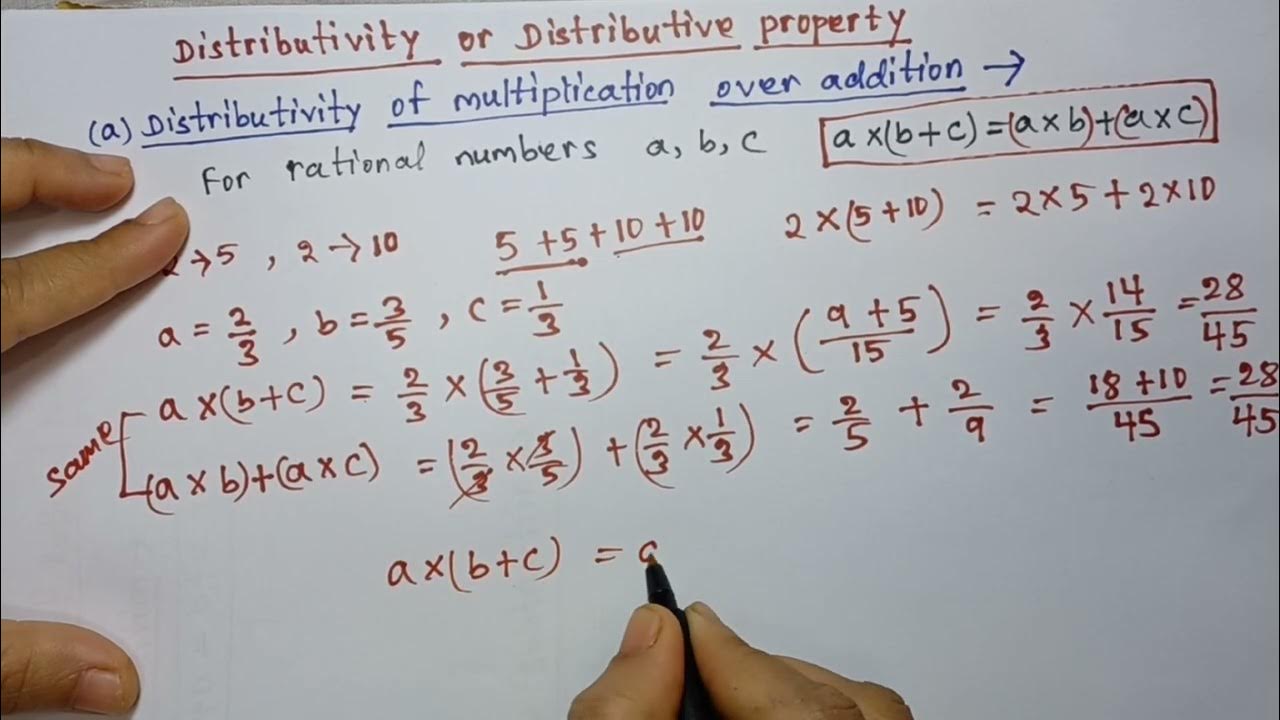 Distributivity or Distributive property
(a) Distributivity of multiplication over addition →
For rational numbers a, b, c a×(b+c)=(a×b)+(a×c)
→5 , 2→10 5+5+10+10 2×(5+10) = 2×5+2×10
a = 2/3 , b = 3/5 , c = 1/3
a×(b+c) = 2/3 × (3/5 + 1/3) = 2/3 × (9+5/15) = 2/3 × 14/15 = 28/45
same
(a×b)+(a×c) = (2/3 × 3/5) + (2/3 × 1/3) = 2/5 + 2/9 = 18+10/45 = 28/45
a×(b+c) = a